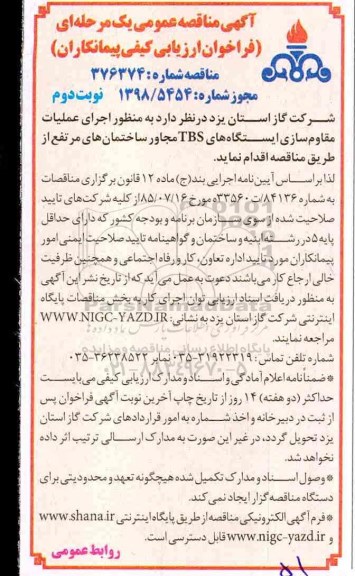 آگهی مناقصه عمومی یک مرحله‌ای
(فراخوان ارزیابی کیفی پیمانکاران)
مناقصه شماره: ۳۷۶۳۷۴
مجوز شماره: ۱۳۹۸/۵۴۵۴ نوبت دوم
شرکت گاز استان یزد درنظر دارد به منظور اجرای عملیات
مقاوم‌سازی ایستگاه‌های TBS مجاور ساختمان‌های مرتفع از
طریق مناقصه اقدام نماید.
لذا براساس آیین‌نامه اجرایی بند(ج) ماده ۱۲ قانون برگزاری مناقصات
به شماره ۸۴۱۳۶/ت۳۳۵۶۰ه مورخ ۸۵/۰۷/۱۶ از کلیه شرکت‌های تایید
صلاحیت شده از سوی سازمان برنامه و بودجه کشور که دارای حداقل
پایه ۵ در رشته ابنیه و ساختمان و گواهینامه تایید صلاحیت ایمنی امور
پیمانکاران مورد تأیید اداره تعاون، کار و رفاه اجتماعی و همچنین ظرفیت
خالی ارجاع کار می‌باشند دعوت به عمل می‌آید که از تاریخ نشر این آگهی
به منظور دریافت اسناد ارزیابی توان اجرای کار به بخش مناقصات پایگاه
اینترنتی شرکت گاز استان یزد به نشانی: WWW.NIGC-YAZD.IR
مراجعه نمایند.
شماره تلفن تماس: ۳۱۹۲۲۳۱۹-۰۳۵ نمابر ۳۶۲۳۸۵۲۲-۰۳۵
*ضمناً نامه اعلام آمادگی و اسناد و مدارک ارزیابی کیفی می‌بایست
حداکثر (دو هفته) ۱۴ روز از تاریخ چاپ آخرین نوبت آگهی فراخوان پس
از ثبت در دبیرخانه و اخذ شماره به امور قراردادهای شرکت گاز استان
یزد تحویل گردد، در غیر این صورت به مدارک ارسالی ترتیب اثر داده
نخواهد شد.
*وصول اسناد و مدارک تکمیل شده هیچگونه تعهد و محدودیتی برای
دستگاه مناقصه‌گزار ایجاد نمی‌کند.
*فرم آگهی الکترونیکی مناقصه از طریق پایگاه اینترنتی www.shana.ir
و www.nigc-yazd.ir قابل دسترسی است.
روابط عمومی